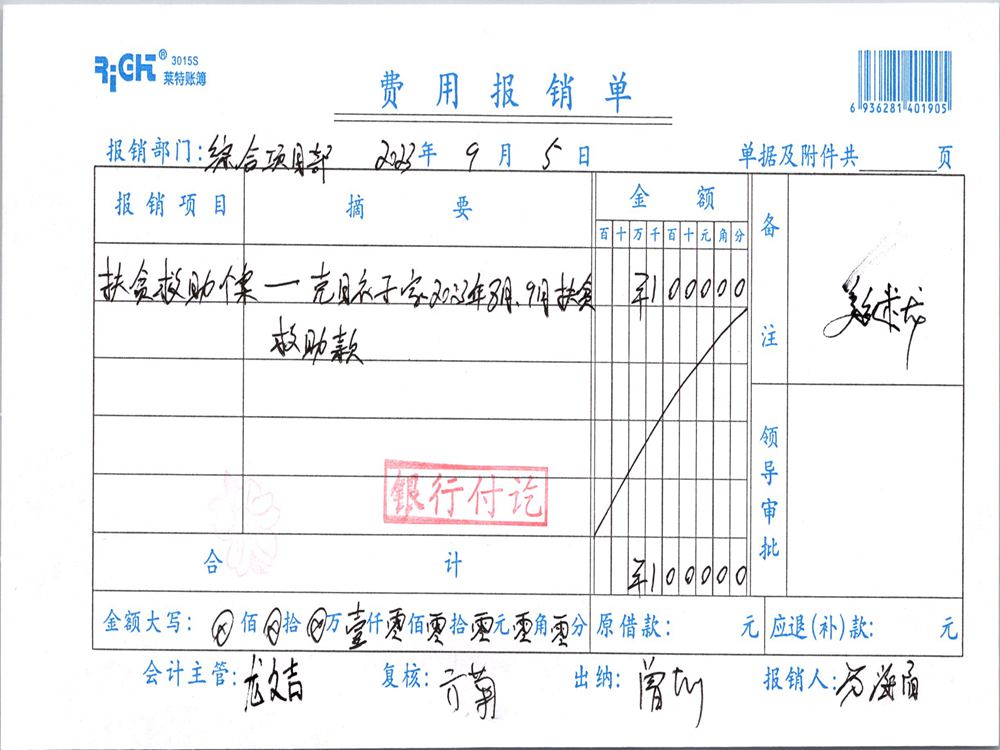 RiGHT® 3015S
莱特账簿
费用报销单
6 936281 401905
报销部门:综合项目部 2023年 9月 5日 单据及附件共 页
报销项目 摘要 金额 备注
百十万千百十元角分
扶贫救助个案一 2023年8月、9月扶贫 ¥100000
救助款
领导审批
银行付讫
合计 ¥100000
金额大写: ⊗佰⊗拾⊗万壹仟零佰零拾零元零角零分 原借款: 元 应退(补)款: 元
会计主管:龙文吉 复核: 出纳:曾 报销人: